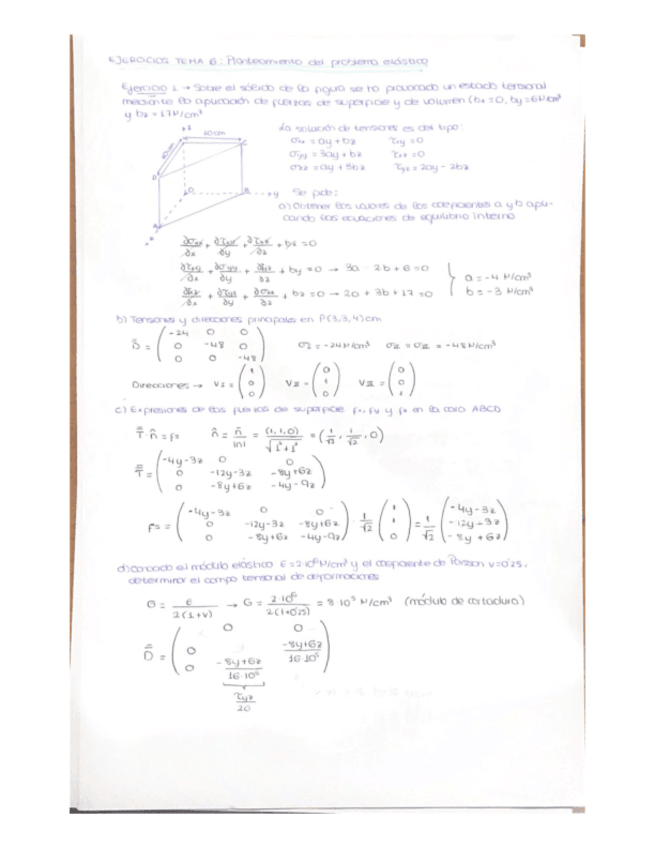 EJERCICIOS TEMA 6: Planteamiento del problema elástico
Ejercicio 1 → Sobre el sólido de la figura se ha provocado un estado tensional
mediante la aplicación de fuerzas de superficie y de volumen (bx = 0, by = 6 N/cm³
y bz = 17 N/cm³
La solución de tensiones es del tipo:
σxx = ay + bz τxy = 0
σyy = 3ay + bz τxz = 0
σzz = ay + 3bz τyz = 2ay - 2bz
60cm
z
y
D
C
O
B
A
Se pide:
a) Obtener los valores de los coeficientes a y b apli-
cando las ecuaciones de equilibrio interno
∂σxx/∂x + ∂τxy/∂y + ∂τxz/∂z + bx = 0
∂τxy/∂x + ∂σyy/∂y + ∂τyz/∂z + by = 0 → 3a - 2b + 6 = 0
∂τxz/∂x + ∂τyz/∂y + ∂σzz/∂z + bz = 0 → 2a + 3b + 17 = 0
a = -4 N/cm³
b = -3 N/cm³
b) Tensiones y direcciones principales en P(3,3,4) cm
= ( -24 0 0
0 -48 0
0 0 -48 )
σI = -24 N/cm³ σII = σIII = -48 N/cm³
Direcciones → VI = (1 0 0) VII = (0 1 0) VIII = (0 0 1)
c) Expresiones de las fuerzas de superficie fx, fy y fz en la cara ABCD
T · n = fs n = n/|n| = (1,1,0)/√(1²+1²) = (1/√2, 1/√2, 0)
T = ( -4y-3z 0 0
0 -12y-3z -8y+6z
0 -8y+6z -4y-9z )
fs = ( -4y-3z 0 0
0 -12y-3z -8y+6z
0 -8y+6z -4y-9z ) · 1/√2 (1 1 0) = 1/√2 ( -4y-3z
-12y-3z
-8y+6z )
d) Conocido el módulo elástico E = 2·10⁶ N/cm² y el coeficiente de Poisson ν = 0'25,
determinar el campo tensorial de deformaciones
G = E / 2(1+ν) → G = 2·10⁶ / 2(1+0'25) = 8·10⁵ N/cm² (módulo de cortadura)
D = ( 0 0
0 -8y+6z / 16·10⁵
0 -8y+6z / 16·10⁵ )
τyz
2G